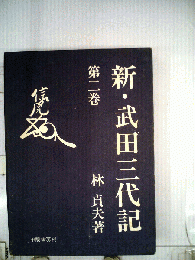 新・武田三代記
第二巻
林 貞夫著
信虎